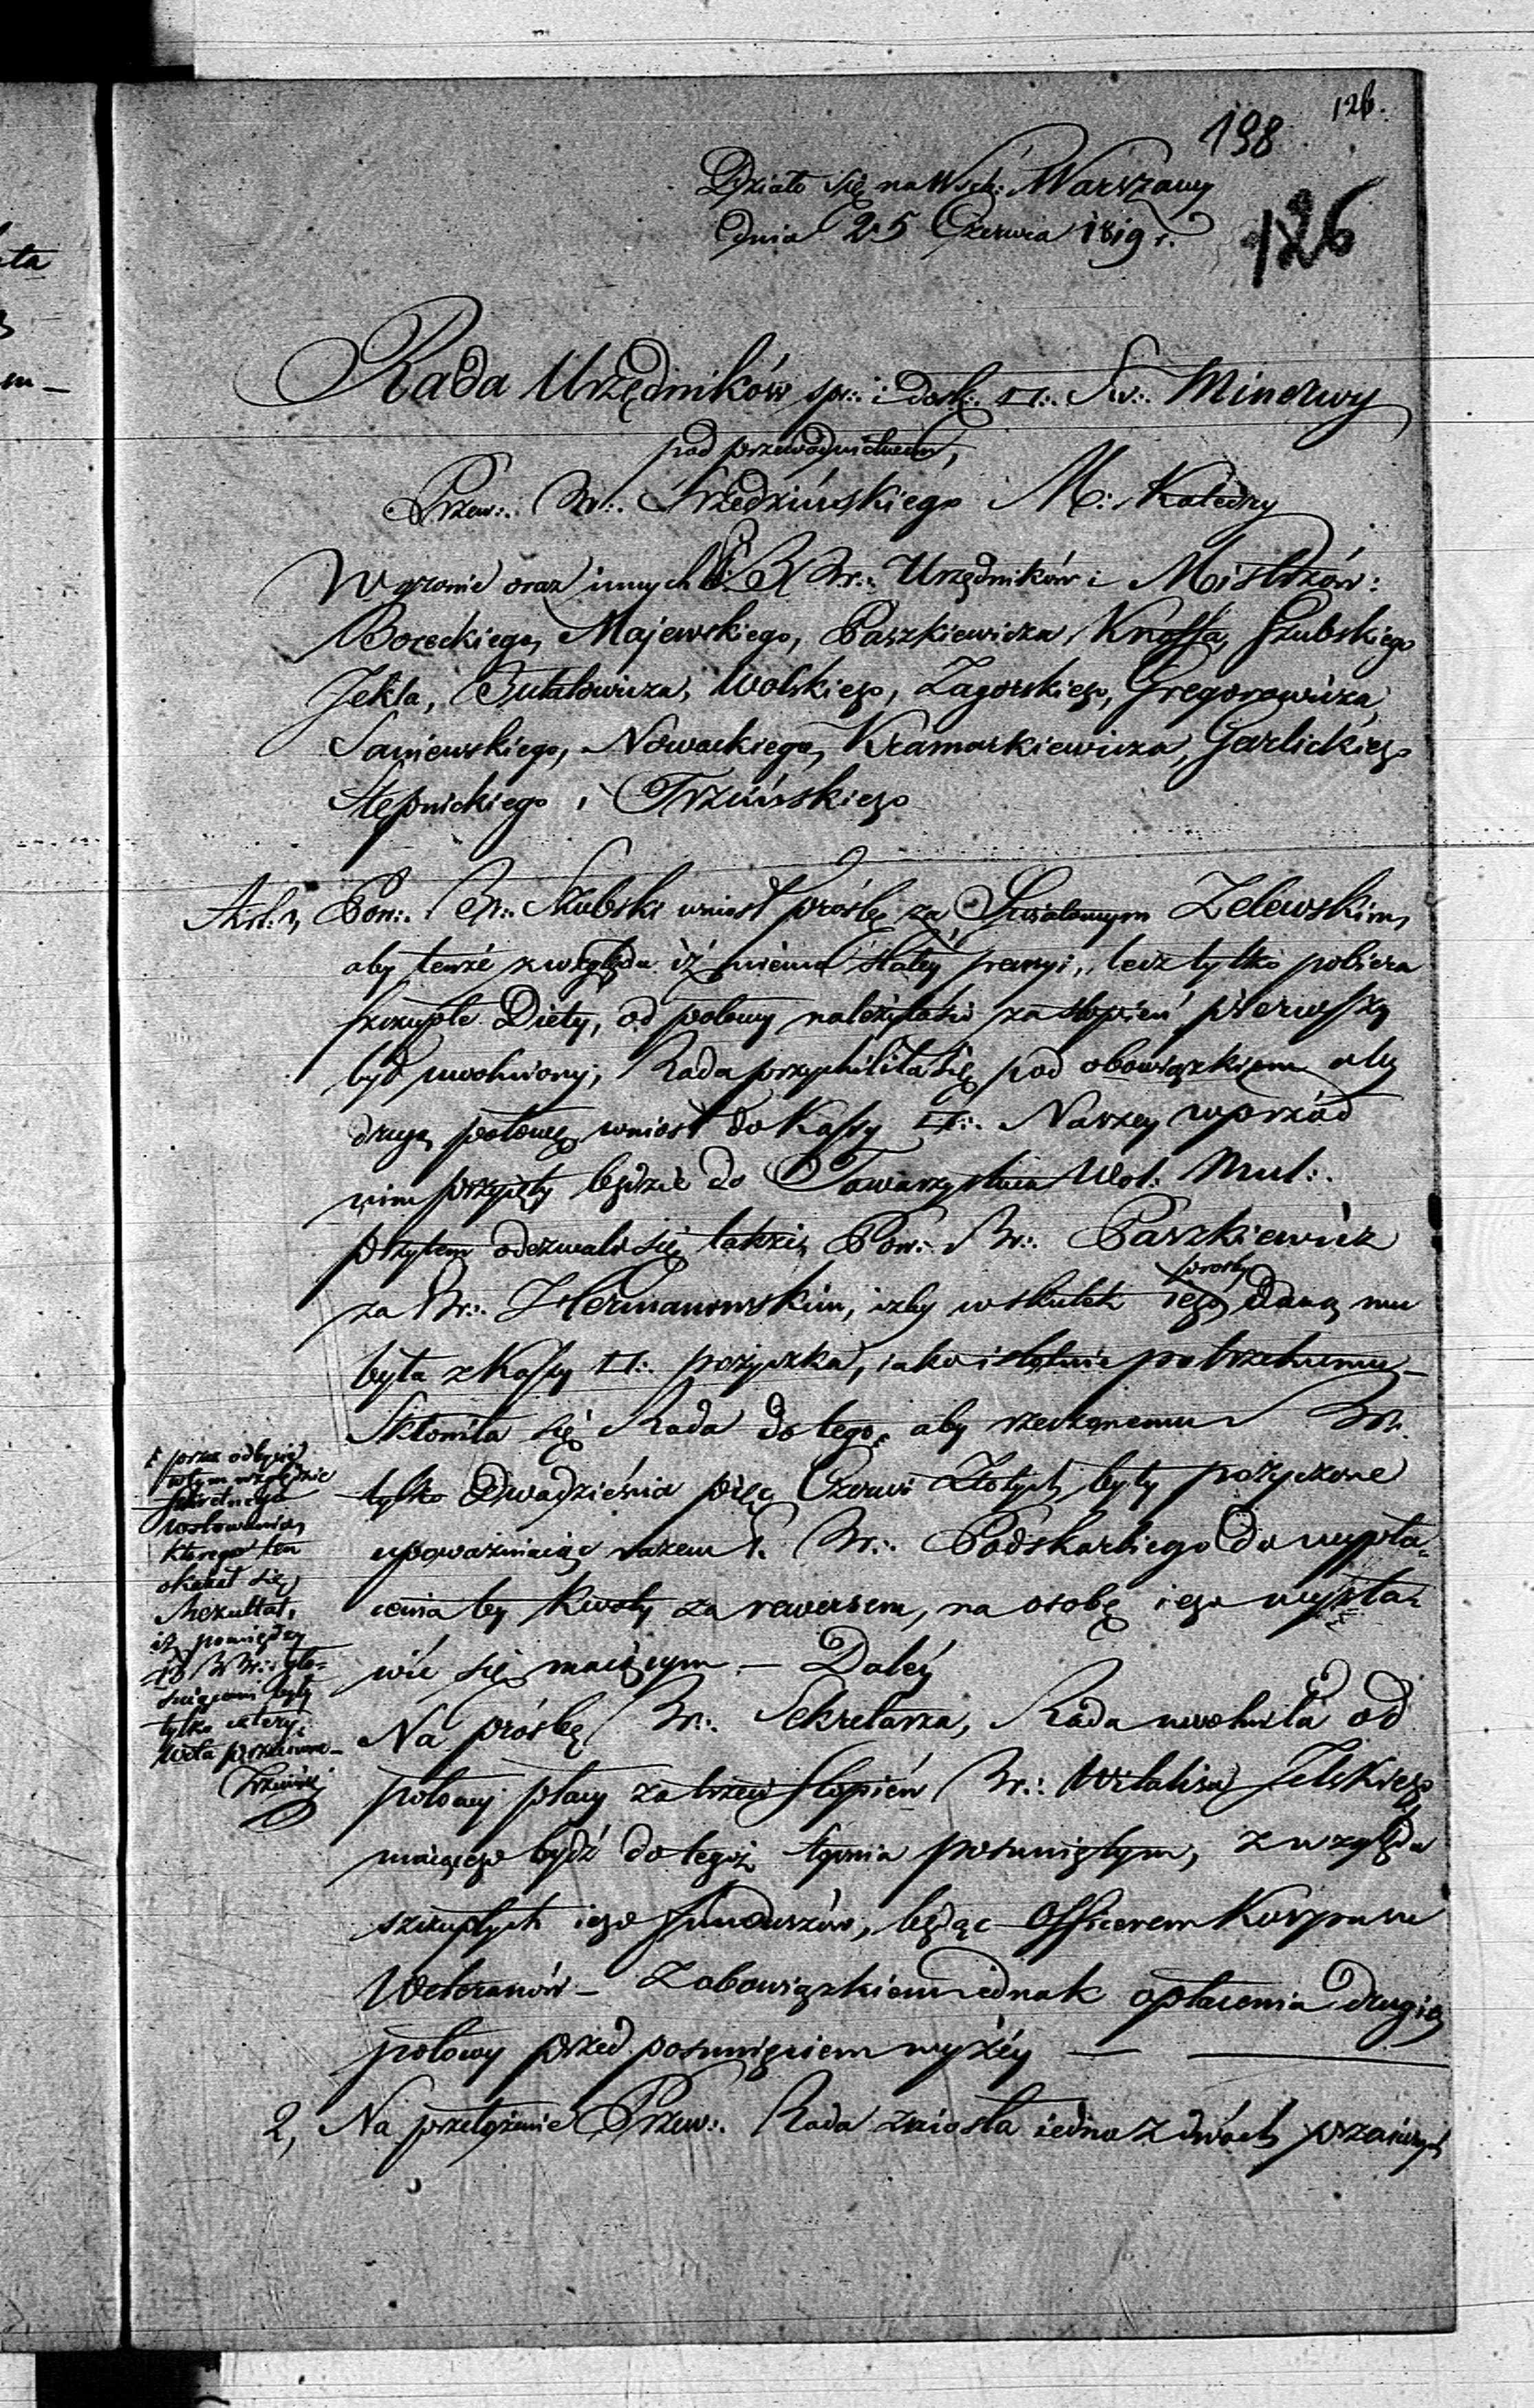 126.
198
126
Działo się na Wsch: Warszawy
dnia 25 Czerwca 1819 r.
Rada Urzędników spr:. i dosk:. □:. Św:. Minerwy
pod przewodnictwem,
Przew:. Br:. Średzińskiego M: Katedry
W gronie oraz innych BBr:. Urzędników i Mistrzów:
Boreckiego, Majewskiego, Paszkiewicza, Knoffa, Szubskiego
Jekla, Butałowicza, Wolskiego, Zagorskiego, Gregorowicza,
Saniewskiego, Nowackiego, Kramarkiewicza, Garlickiego
Stępnickiego i Trzcińskiego
Art: 1, Pow:. Br:. Szubski wniosł prośbę za Światowym Zelewskim,
aby tenże z względu iż niema stałey pensyi, lecz tylko pobiera
szczupłe Diety, od połowy należytości za stopień pierwszy
był uwolniony; Rada przychiliła się pod obowiązkiem aby
drugą połowę wniosł do Kassy □:. Naszey wprzód
nim przyięty będzie do Towarzystwa Wol: Mul:.
przytem odezwał się także Pow:. Br:. Paszkiewicz
za Br:. Hermanowskim, izby wskutek iego prośby daną mu
była z Kassy □:. pożyczka, iako istotnie potrzebnemu –
Skłoniła się Rada do tego, aby rzeczonemu Br:.
tylko Dwadzieścia pięć Czerw: Złotych były pożyczone
upoważniaiąc razem P. Br:. Podskarbiego do wypła=
cenia tey kwoty za rewersem, na osobę iego wysta=
wić się maiącym. – Daley
Na prośbę Br:. Sekretarza, Rada uwolniła od
połowy płacy za trzeci stopień Br:. Witalisa Jelskiego
maiącego bydź do tegoż stopnia posuniętym, z względu
szczupłych iego funduszów, będąc Officerem Korpusu
Weteranów – z obowiązkiem iednak opłacenia drugiey
połowy przed posunięciem wyżey —
2, Na przełożenie Przew:. Rada zniosła iedno z dwóch
przez odbycie
w tym względzie
sekretnego
wotowania,
którego ten
okazał się
Rezultat,
iż pomiędzy
BBr:. gło=
suiącemi były
tylko cztery
wota przeciwne –
Trzciński